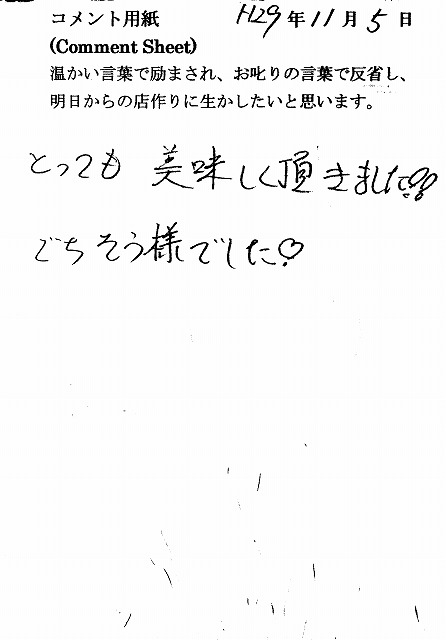 コメント用紙 H29年11月5日
(Comment Sheet)
温かい言葉で励まされ、お叱りの言葉で反省し、
明日からの店作りに生かしたいと思います。
とっても 美味しく頂きました!!
ごちそう様でした♡